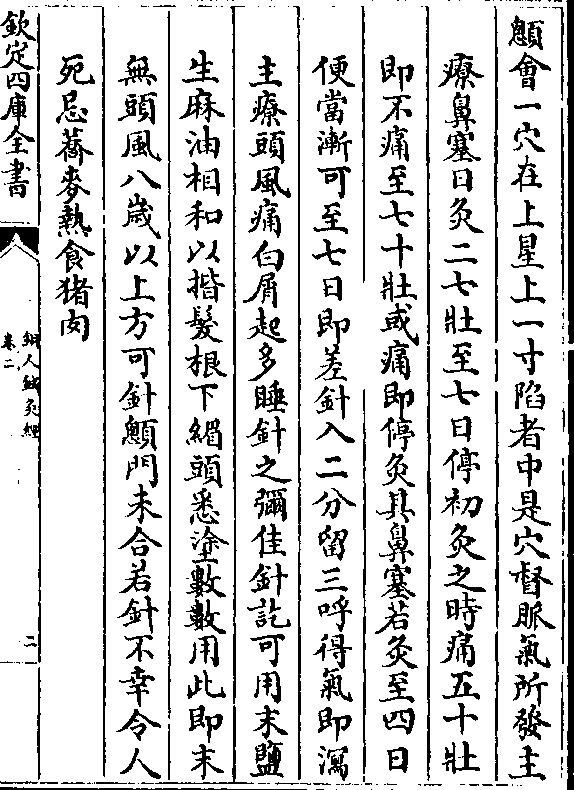 顖會一穴在上星上一寸陷者中是穴督脈氣所發主
療鼻塞日灸二七壯至七日停初灸之時痛五十壯
即不痛至七十壯或痛即停灸具鼻塞若灸至四日
便當漸可至七日即差針入二分留三呼得氣即瀉
主療頭風痛白屑起多睡針之彌佳針訖可用末鹽
生麻油相和以揩髮根下䋿頭悉塗數數用此即末
無頭風八歲以上方可針顖門未合若針不幸令人
死忌蕎麥熱食猪肉
欽定四庫全書
銅人鍼灸經
卷二
二